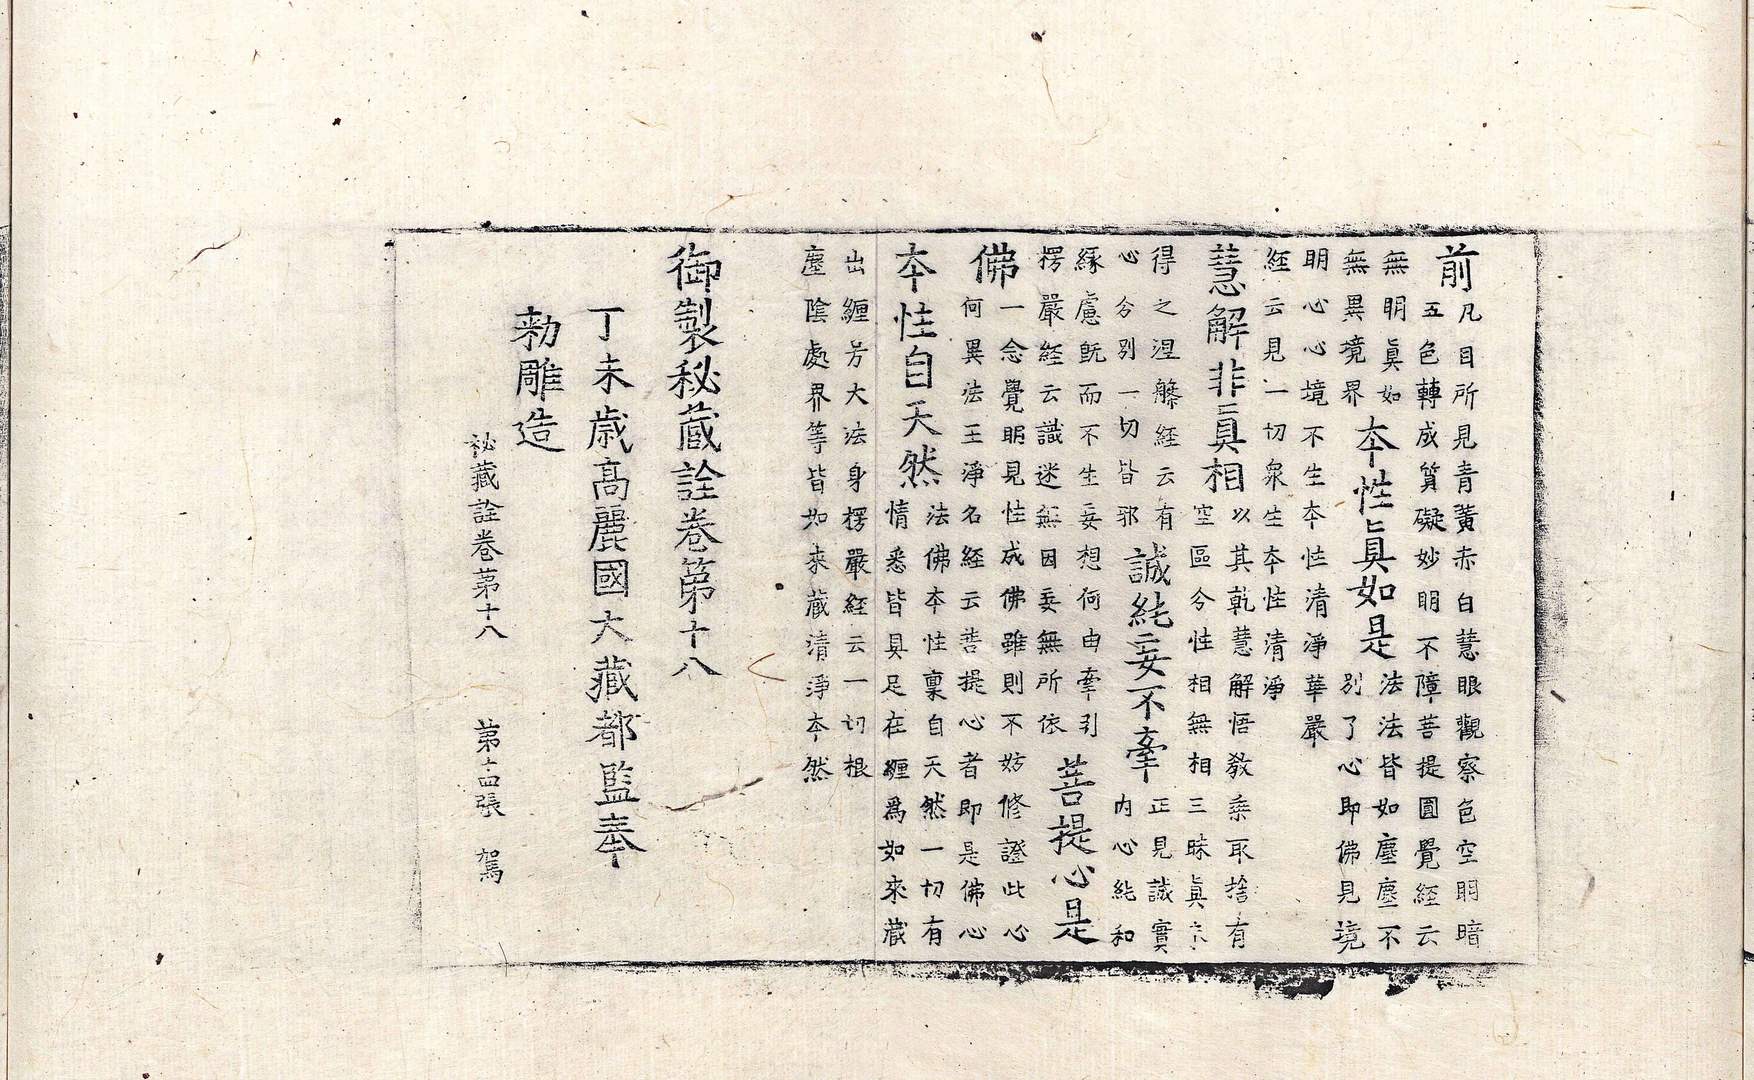 前
凡目所見青黃赤白慧眼觀察色空明暗
五色轉成質礙妙明不障菩提圓覺經云
無明眞如
無異境界
本性眞如是
法法皆如塵塵不
別了心即佛見境
明心心境不生本性清淨華嚴
經云見一切衆生本性清淨
慧解非眞相
以其乾慧解悟教乘取捨有
空區分性相無相三昧眞宗
得之涅槃經云有
心分別一切皆邪
誠純妄不牽
正見誠實
内心純和
緣慮旣而不生妄想何由牽引
楞嚴經云識迷無因妄無所依
菩提心是
佛
一念覺明見性成佛雖則不妨修證此心
何異法王淨名經云菩提心者即是佛心
本性自天然
法佛本性稟自天然一切有
情悉皆具足在纏爲如來藏
出纏芳大法身楞嚴經云一切根
塵陰處界等皆如來藏清淨本然
御製秘蔵詮卷第十八
丁未歲高麗國大藏都監奉
勑雕造
祕藏詮卷第十八 第十四張 駕